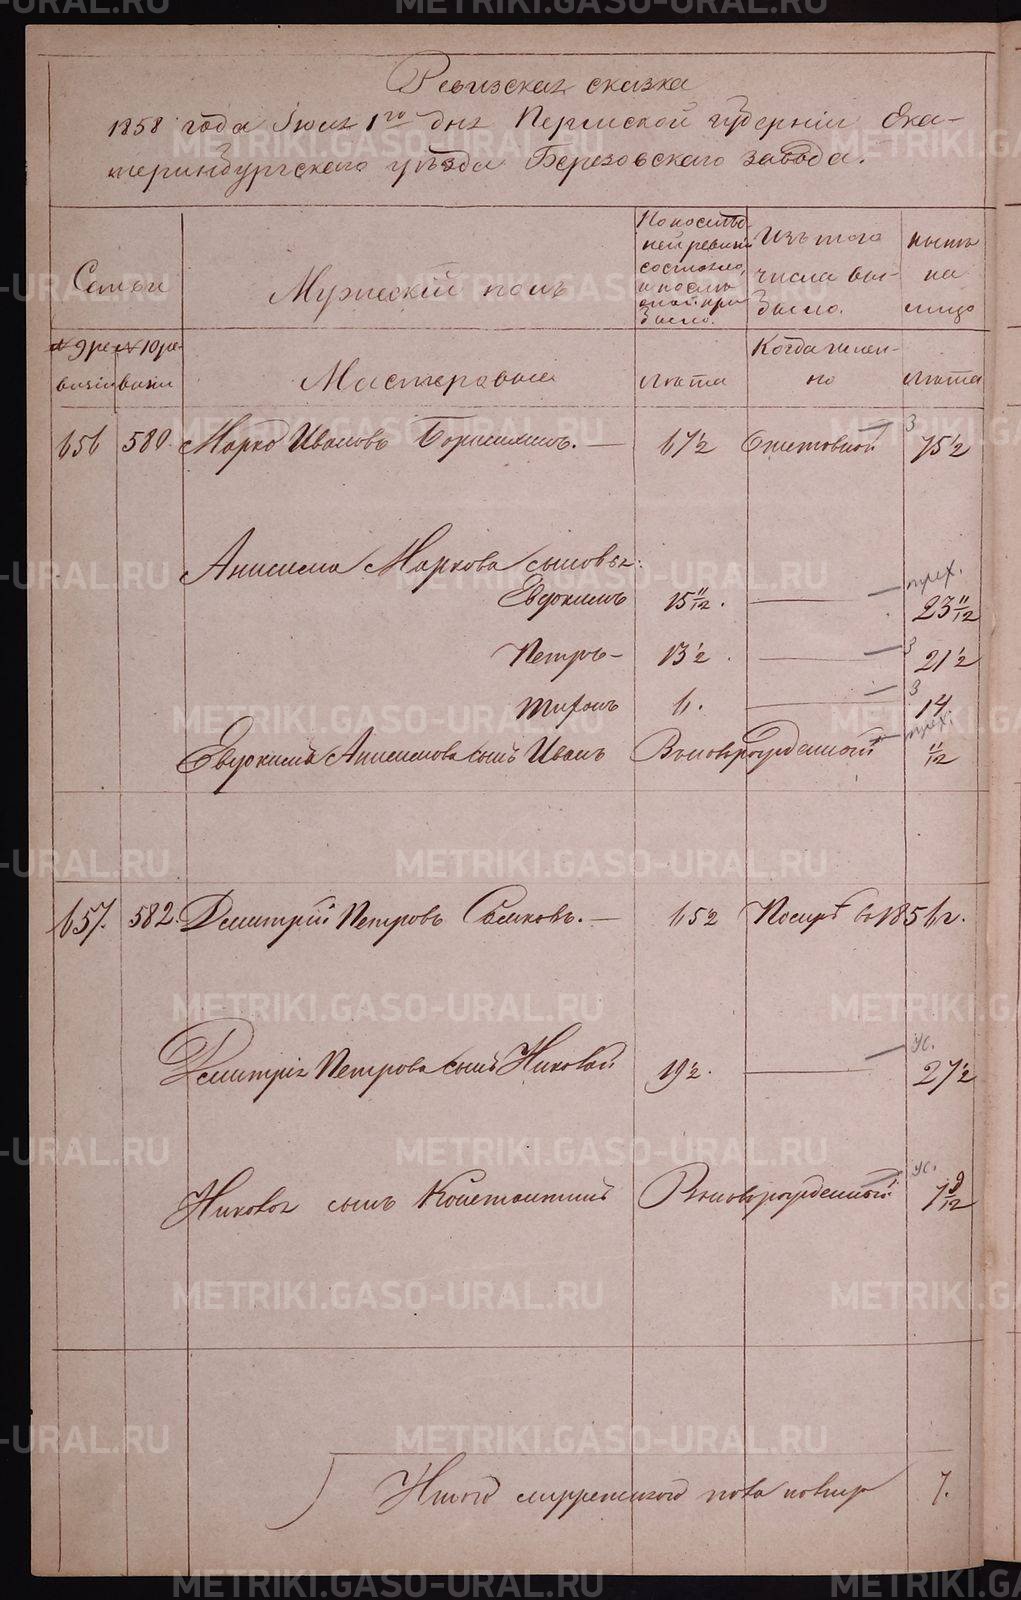 Ревизская сказка
1858 года Июня 1го дня Пермской губерніи Ека-
теринбургскаго уѣзда Березовскаго завода.
Семьи
Мужескій полъ
По послѣд-
ней ревизіи
состояло,
и послѣ
оной при
было.
Изъ того
числа вы-
было.
Нынѣ
на
лицо
9 ре-
визіи
10 ре-
визіи
Мастеровые
Лѣта
Когда имен-
но
Лѣта
656 580. Марко Ивановъ 67½ Отставной 3 75½
Анисима Маркова сыновья:
Евдокимъ 15 11/12. прех. 23 11/12
Петръ 13½. 3 21½
Тихонъ 6. 3 14
Евдокима Анисимова сынъ Иванъ Вновьрожденный прех. 11/12
657. 582. Дмитрій Петровъ 65½ Помре в 1856 г.
Дмитрія Петрова сынъ Николай 19½. ус. 27½
Николая сынъ Константинъ Вновьрожденный ус. 1 9/12
Итого мужескаго пола 7.
METRIKI.GASO-URAL.RU